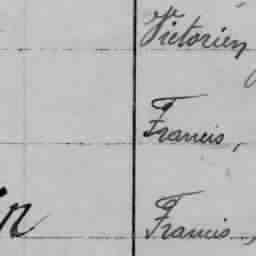 Victorien
Francis,
in
Francis,